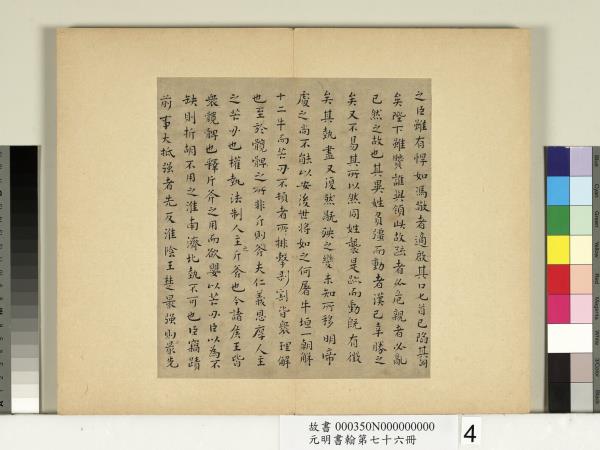 之臣雖有悍如馮敬者適啟其口匕首已陷其胷
矣陛下雖賢誰與領此故疏者必危親者必亂
已然之故也其異姓負彊而動者漢已幸勝之
矣又不易其所以然同姓襲是跡而動既有徵
矣其執盡又復然旤殃之變未知所移明帝
處之尚不能以安後世將如之何屠牛坦一朝解
十二牛而芒刃不頓者所排擊剝割皆衆理解
也至於髖髀之所非斤則斧夫仁義恩厚人主
之芒刃也權執法制人主之斤斧也今諸侯王皆
衆髖髀也釋斤斧之用而欲嬰以芒刃臣以為不
缺則折胡不用之淮南濟北執不可也臣竊蹟
前事大抵强者先反淮陰王楚最强則最先
故書 000350N000000000
元明書翰第七十六冊
4
Blue
Cyan
Green
Yellow
Red
Magenta
White
3/Color
Black